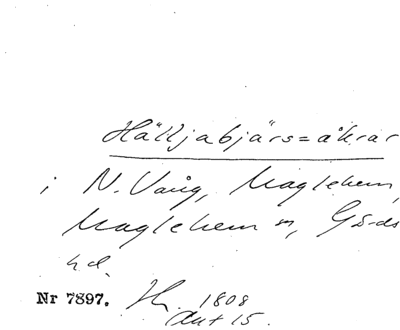 Hälljabjärs=åkrar
i N. Vång, Maglehem,
Maglehem sn, Gärds
hd.
Nr 7897. Sk. 1808
Akt 15.